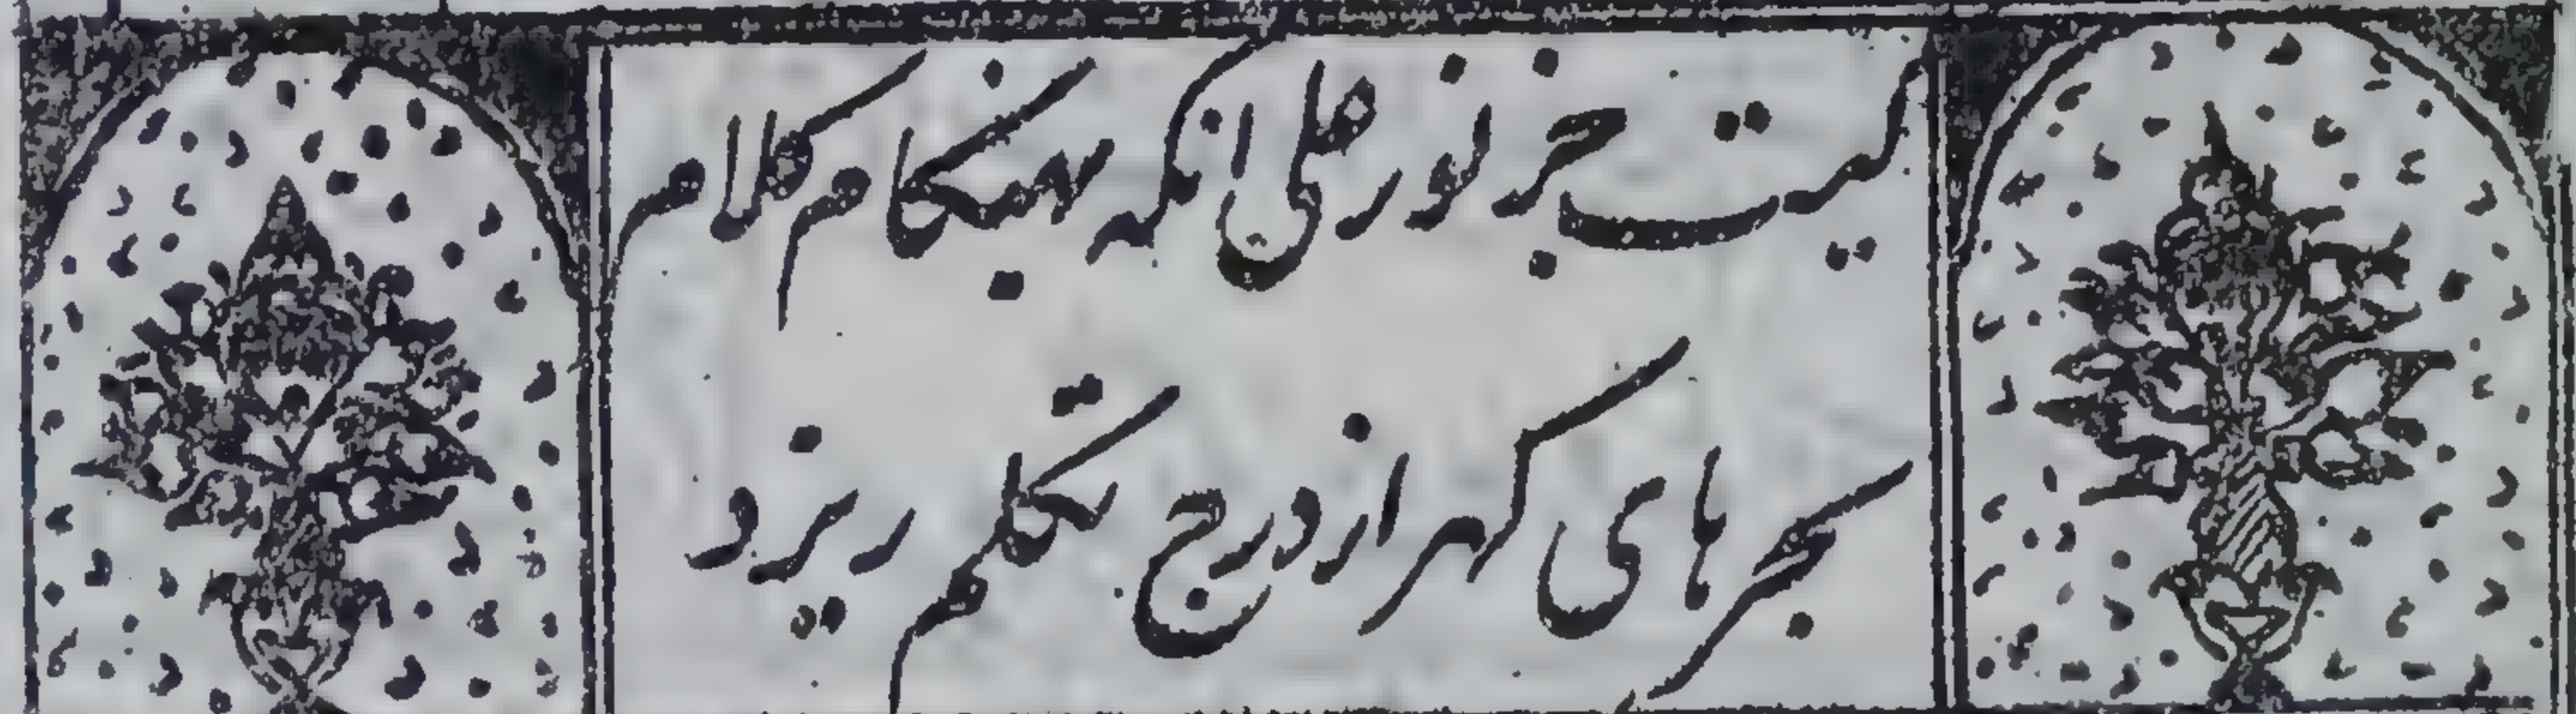 کیست جز نور علی انکه بهنگام کلام
بحرهای کهر از درج تکلم ریزد